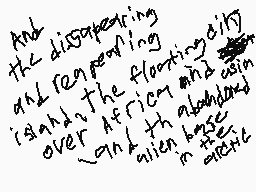 And
the dissapearing
and reapearing
island, the floating city
over Africa and asia
and th abandoned
alien base
in the
arctic